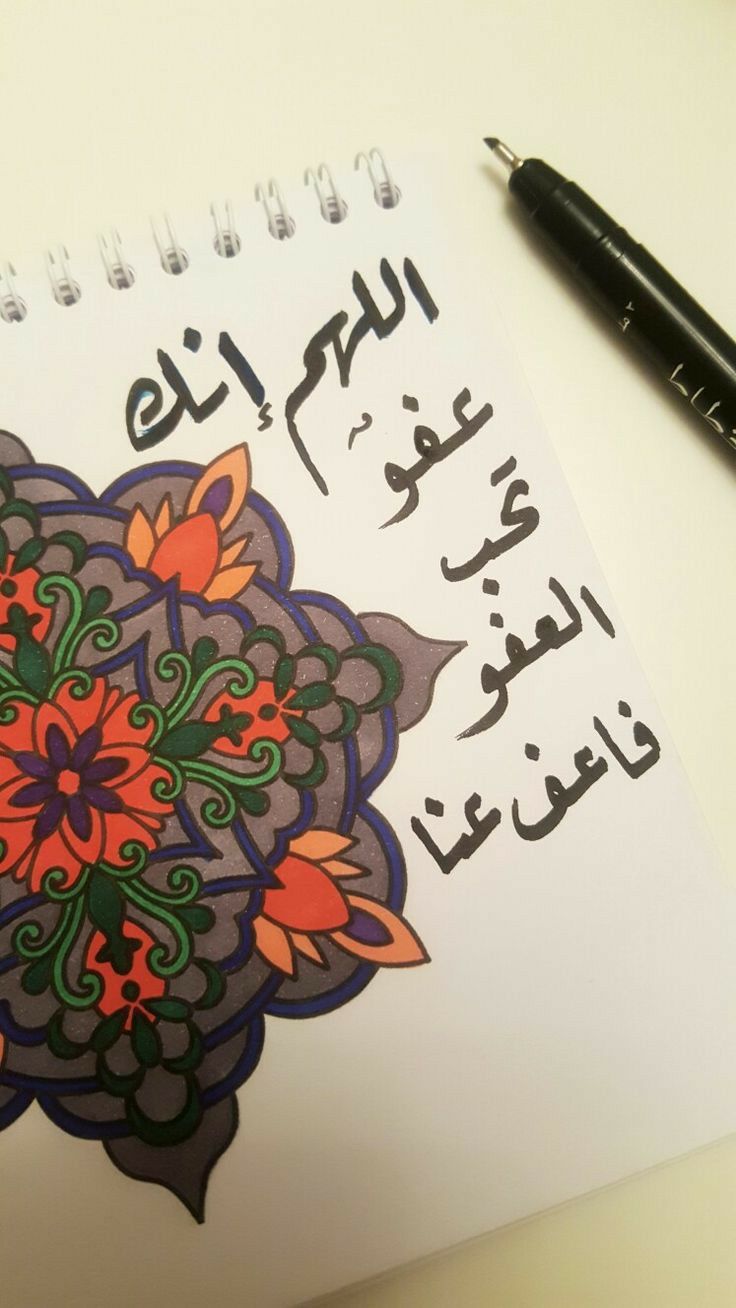 اللهم إنك
عفوٌ
تَحب
العفو
فاعف عنا
خطاط